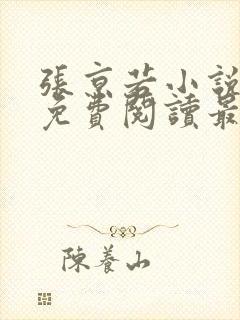 張京若小說
免費閱讀最
陳養山